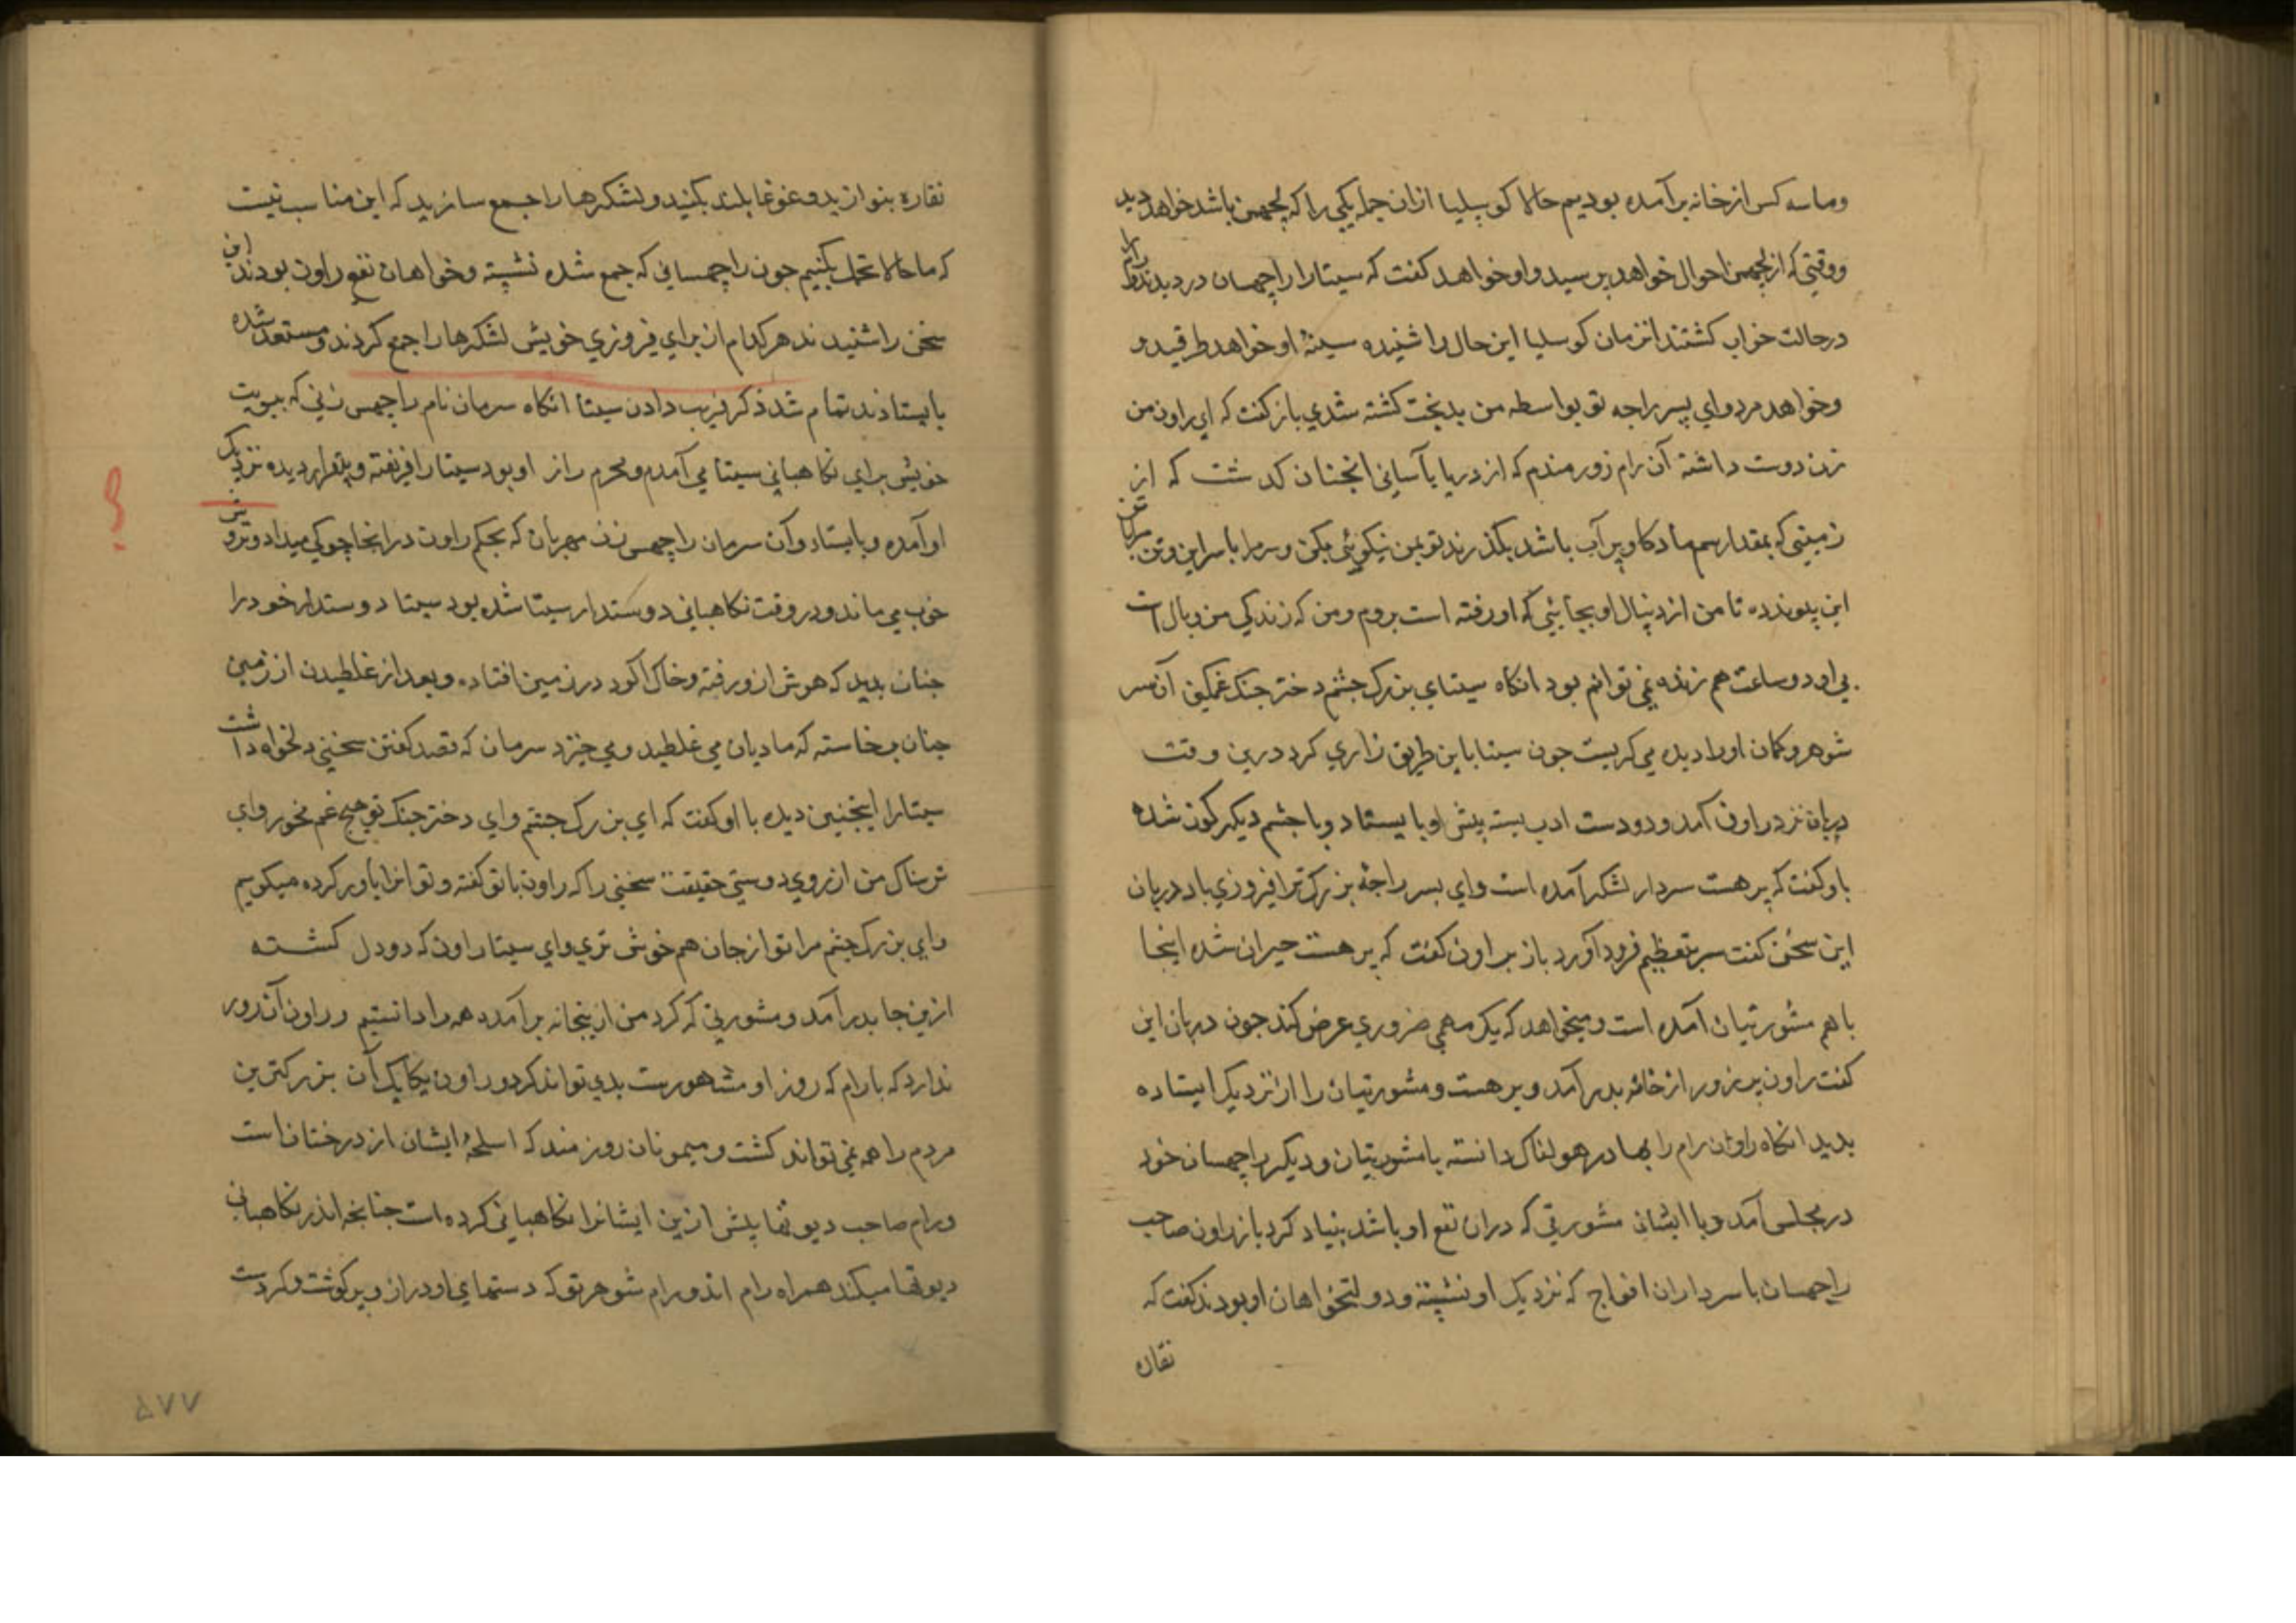 وماسه کس از خانه برآمده بودیم حالا کوسلیا ازان جمله یکی را که لچهمن باشد خواهد دید
ووقتی که از لچهمن احوال خواهد پرسید و او خواهد کفت که سیتا را راچهسان دزدیدند و رام را
درحالت خواب کشتند انزمان کوسلیا این حال را شنیده سینهٔ او خواهد طرقید و
وخواهد مرد وای پسر راجه تو بواسطه من بدبخت کشته شدی باز کفت که ای راون من
زن دوست داشته آن رام زورمندم که از دریا بآسانی انچنان کدشت که از
زمینی که بمقدار سم ماده کاو پر آب باشد بکذرند تو بمن نیکوئی بکن و سر مرا با سر این و تن مرا با تن
این پیوند ده تا من از دنبال او بجائی که او رفته است بروم ومن که زندکی من وبال است
بی او دو ساعت هم زنده نمی توانم بود انکاه سیتای بزرک چشم دختر جنک غمکین آن سر
شوهر وکمان او را دیده می کریست جون سیتا باین طریق زاری کرد درین وقت
دربان نزد راون آمد و دو دست ادب بسته پیش او بایستاد و با چشم دیکرکون شده
باو کفت که پرهست سردار لشکر آمده است وای پسر راجهٔ بزرک ترا فیروزی باد دربان
این سخن کفت سر بتعظیم فرود آورد باز براون کفت که پرهست حیران شده اینجا
باهم مشورتیان آمده است و میخواهد که یک مهمی ضروری عرض کند جون دربان این
کفت راون پرزور از خانه بدر آمد و پرهست و مشورتیان را از نزدیک ایستاده
بدید انکاه راون رام را بهادر هولناک دانسته با مشورتیان و دیکر راچهسان خود
در مجلس آمد و با ایشان مشورتی که دران نفع او باشد بنیاد کرد باز راون صاحب
راچهسان با سرداران افواج که نزدیک او نشسته و دولتخواهان او بودند کفت که
نقاره
نقاره بنوازید و غوغا بلند بکنید و لشکرها را جمع سازید که این مناسب نیست
که ما حالا تحمل بکنیم جون راچهسانی که جمع شده نشسته و خواهان نفع راون بودند این
سخن را شنیدند هر کدام از برای فیروزی خویش لشکرها را جمع کردند و مستعد شده
بایستادند تمام شد ذکر فریب دادن سیتا انکاه سرمان نام راچهس زنی که بنوبت
خویش برای نکاهبانی سیتا می آمد و محرم راز او بود سیتا را فریفته و بیقرار دیده نزدیک
او آمده و بایستاد وآن سرمان راچهس زن مهربان که بحکم راون در انجا چوکی میداد و
خوب می ماند و در وقت نکاهبانی دوستدار سیتا شده بود سیتا دوستدار خود را
چنان بدید که هوش ازو رفته و خاک آلود در زمین افتاده و بعد از غلطیدن از زمین
چنان برخاسته که مادیان می غلطید و می خیزد سرمان که قصد کفتن سخنی دلخواه داشت
سیتا را اینچنین دیده با او کفت که ای بزرک چشم وای دختر جنک تو هیچ غم مخور وای
ترسناک من از روی دوستی حقیقت سخنی را که راون با تو کفته و تو انرا باور کرده میکویم
وای بزرک چشم مرا تو از جان هم خوش تری وای سیتا راون که دو دل کشته
ازین جا بدر آمد و مشورتی که کرد من ازینخانه برآمده همه را دانستیم و راون آن زور
ندارد که با رام که روز او مشهورست بدی تواند کرد و راون یکایک آن بزرکترین
مردم را هم نمی تواند کشت و میمونان زورمند که اسلحهٔ ایشان از درختان است
ورام صاحب دیوتها پیش ازین ایشانرا نکاهبانی کرده است چنانچه اندر نکاهبانی
دیوتها میکند همراه رام اند و رام شوهر تو که دستهای او دراز و پر کوشت و کرد ست
۵۷۷